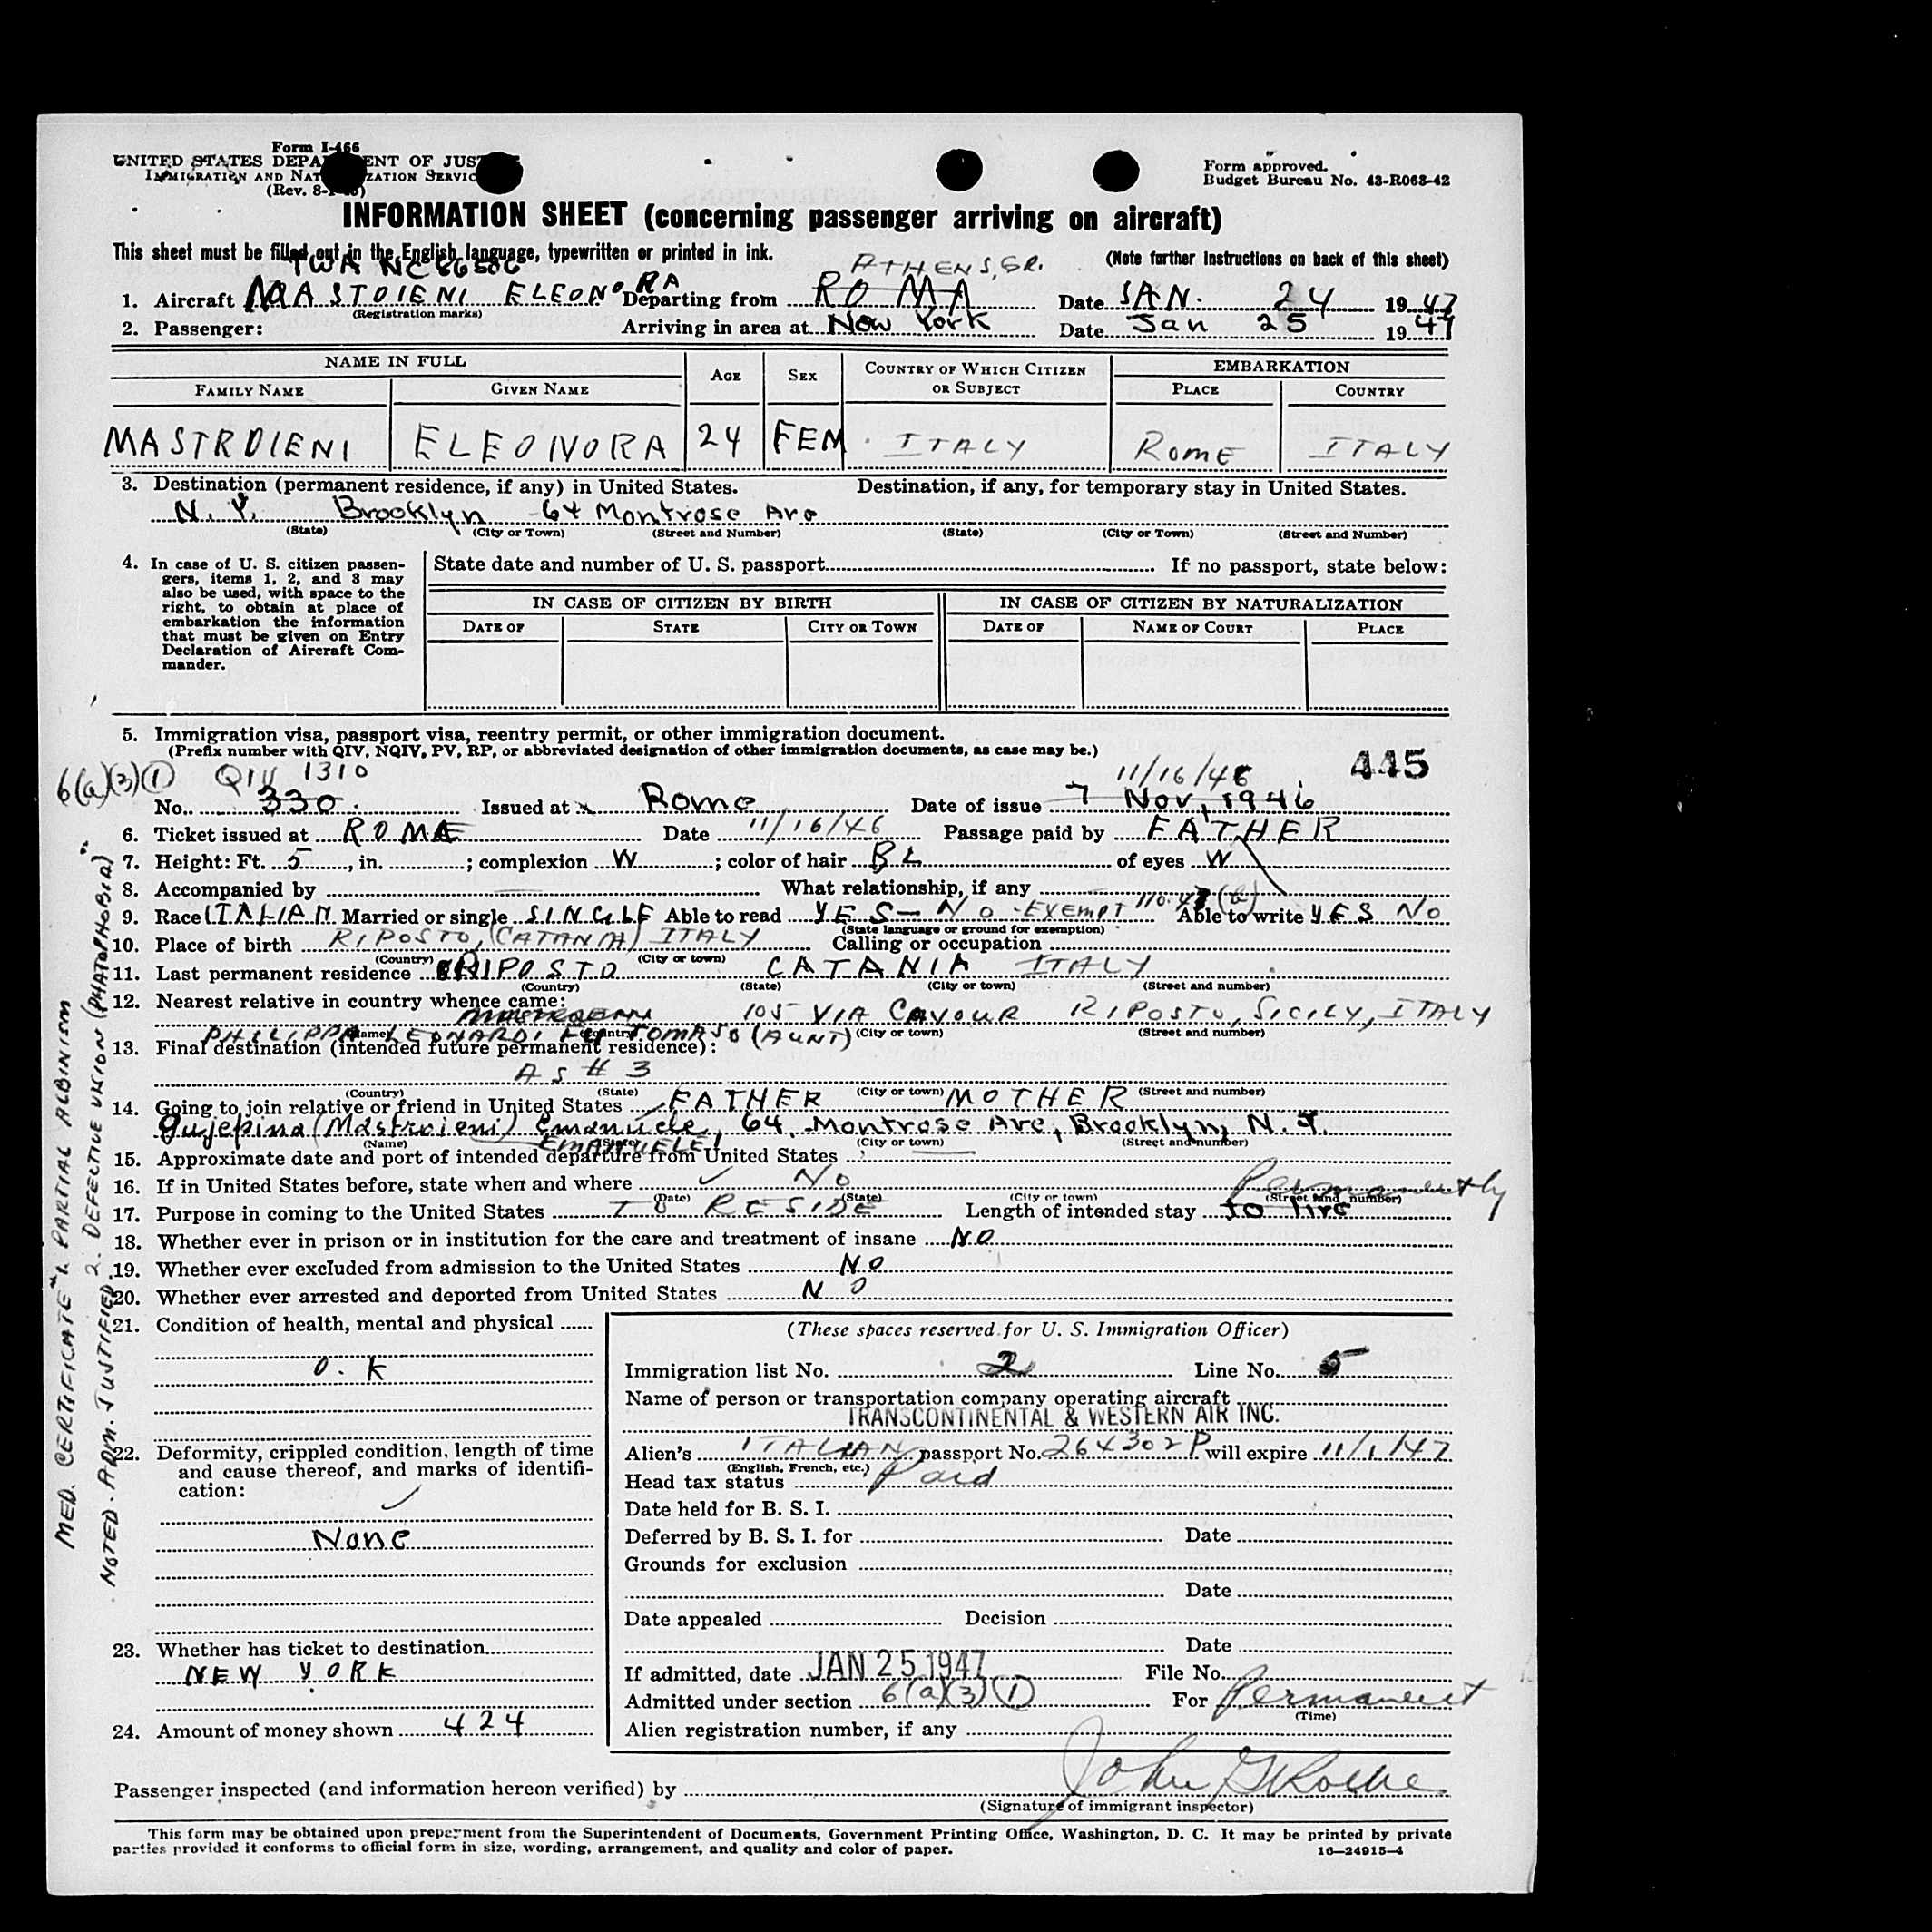 Form I-466
UNITED STATES DEPA ENT OF JUS
IMMIGRATION AND NAT ZATION SERVIC
(Rev. 8-
Form approved.
Budget Bureau No. 43-R063-42
INFORMATION SHEET (concerning passenger arriving on aircraft)
This sheet must be filled out in the English language, typewritten or printed in ink. (Note further instructions on back of this sheet)
TWA NC 86506 ATHENS, GR.
1. Aircraft MASTOIENI ELEONORA Departing from ROMA Date JAN. 24 1947
(Registration marks)
2. Passenger: Arriving in area at New York Date Jan 25 1947
NAME IN FULL AGE SEX COUNTRY OF WHICH CITIZEN OR SUBJECT EMBARKATION
FAMILY NAME GIVEN NAME PLACE COUNTRY
MASTROIENI ELEONORA 24 FEM. ITALY ROME ITALY
3. Destination (permanent residence, if any) in United States. Destination, if any, for temporary stay in United States.
N.Y. Brooklyn 64 Montrose Ave
(State) (City or Town) (Street and Number) (State) (City or Town) (Street and Number)
4. In case of U. S. citizen passen-
gers, items 1, 2, and 3 may
also be used, with space to the
right, to obtain at place of
embarkation the information
that must be given on Entry
Declaration of Aircraft Com-
mander.
State date and number of U. S. passport If no passport, state below:
IN CASE OF CITIZEN BY BIRTH IN CASE OF CITIZEN BY NATURALIZATION
DATE OF STATE CITY OR TOWN DATE OF NAME OF COURT PLACE
5. Immigration visa, passport visa, reentry permit, or other immigration document.
(Prefix number with QIV, NQIV, PV, RP, or abbreviated designation of other immigration documents, as case may be.)
445
6(a)(3)(1) QIV 1310 11/16/46
No. 330. Issued at Rome Date of issue 7 Nov, 1946
6. Ticket issued at ROMA Date 11/16/46 Passage paid by FATHER
7. Height: Ft. 5, in. ; complexion W ; color of hair BL of eyes W
8. Accompanied by What relationship, if any
9. Race ITALIAN Married or single SINGLE Able to read YES - No - EXEMPT 110.47(a) Able to write YES No
(State language or ground for exemption)
10. Place of birth RIPOSTO, (CATANIA) ITALY Calling or occupation
(Country) (City or town)
11. Last permanent residence RIPOSTO CATANIA ITALY
(Country) (State) (City or town) (Street and number)
12. Nearest relative in country whence came:
105 VIA CAVOUR RIPOSTO, SICILY, ITALY
PHILIPPA LEONARDI FU TOMASO (AUNT)
(Name) (Country) (City or town) (Street and number)
13. Final destination (intended future permanent residence):
AS # 3
(Country) (State) (City or town) (Street and number)
14. Going to join relative or friend in United States FATHER MOTHER
Gujepina (Mastroieni) Emanuele, 64, Montrose Ave, Brooklyn, N.Y.
(Name) (State) (City or town) (Street and number)
EMANUELE!
15. Approximate date and port of intended departure from United States
16. If in United States before, state when and where No
(Date) (State) (City or town) (Street and number)
Permanently
17. Purpose in coming to the United States TO RESIDE Length of intended stay to live
18. Whether ever in prison or in institution for the care and treatment of insane NO
19. Whether ever excluded from admission to the United States NO
20. Whether ever arrested and deported from United States NO
21. Condition of health, mental and physical
O.K
22. Deformity, crippled condition, length of time
and cause thereof, and marks of identifi-
cation:
None
23. Whether has ticket to destination
NEW YORK
24. Amount of money shown 424
(These spaces reserved for U. S. Immigration Officer)
Immigration list No. 2 Line No. 5
Name of person or transportation company operating aircraft
TRANSCONTINENTAL & WESTERN AIR INC.
Alien's ITALIAN passport No. 264302P will expire 11/1/47
(English, French, etc.)
Head tax status Paid
Date held for B. S. I.
Deferred by B. S. I. for Date
Grounds for exclusion
Date
Date appealed Decision
Date
If admitted, date JAN 25 1947 File No.
Admitted under section 6(a)(3)(1) For Permanent
(Time)
Alien registration number, if any
Passenger inspected (and information hereon verified) by
(Signature of immigrant inspector)
This form may be obtained upon prepayment from the Superintendent of Documents, Government Printing Office, Washington, D. C. It may be printed by private
parties provided it conforms to official form in size, wording, arrangement, and quality and color of paper. 16—24915-4
MED. CERTIFICATE "1. PARTIAL ALBINISM
2. DEFECTIVE VISION (PHATOPHOBIA)"
NOTED. ADM. JUSTIFIED